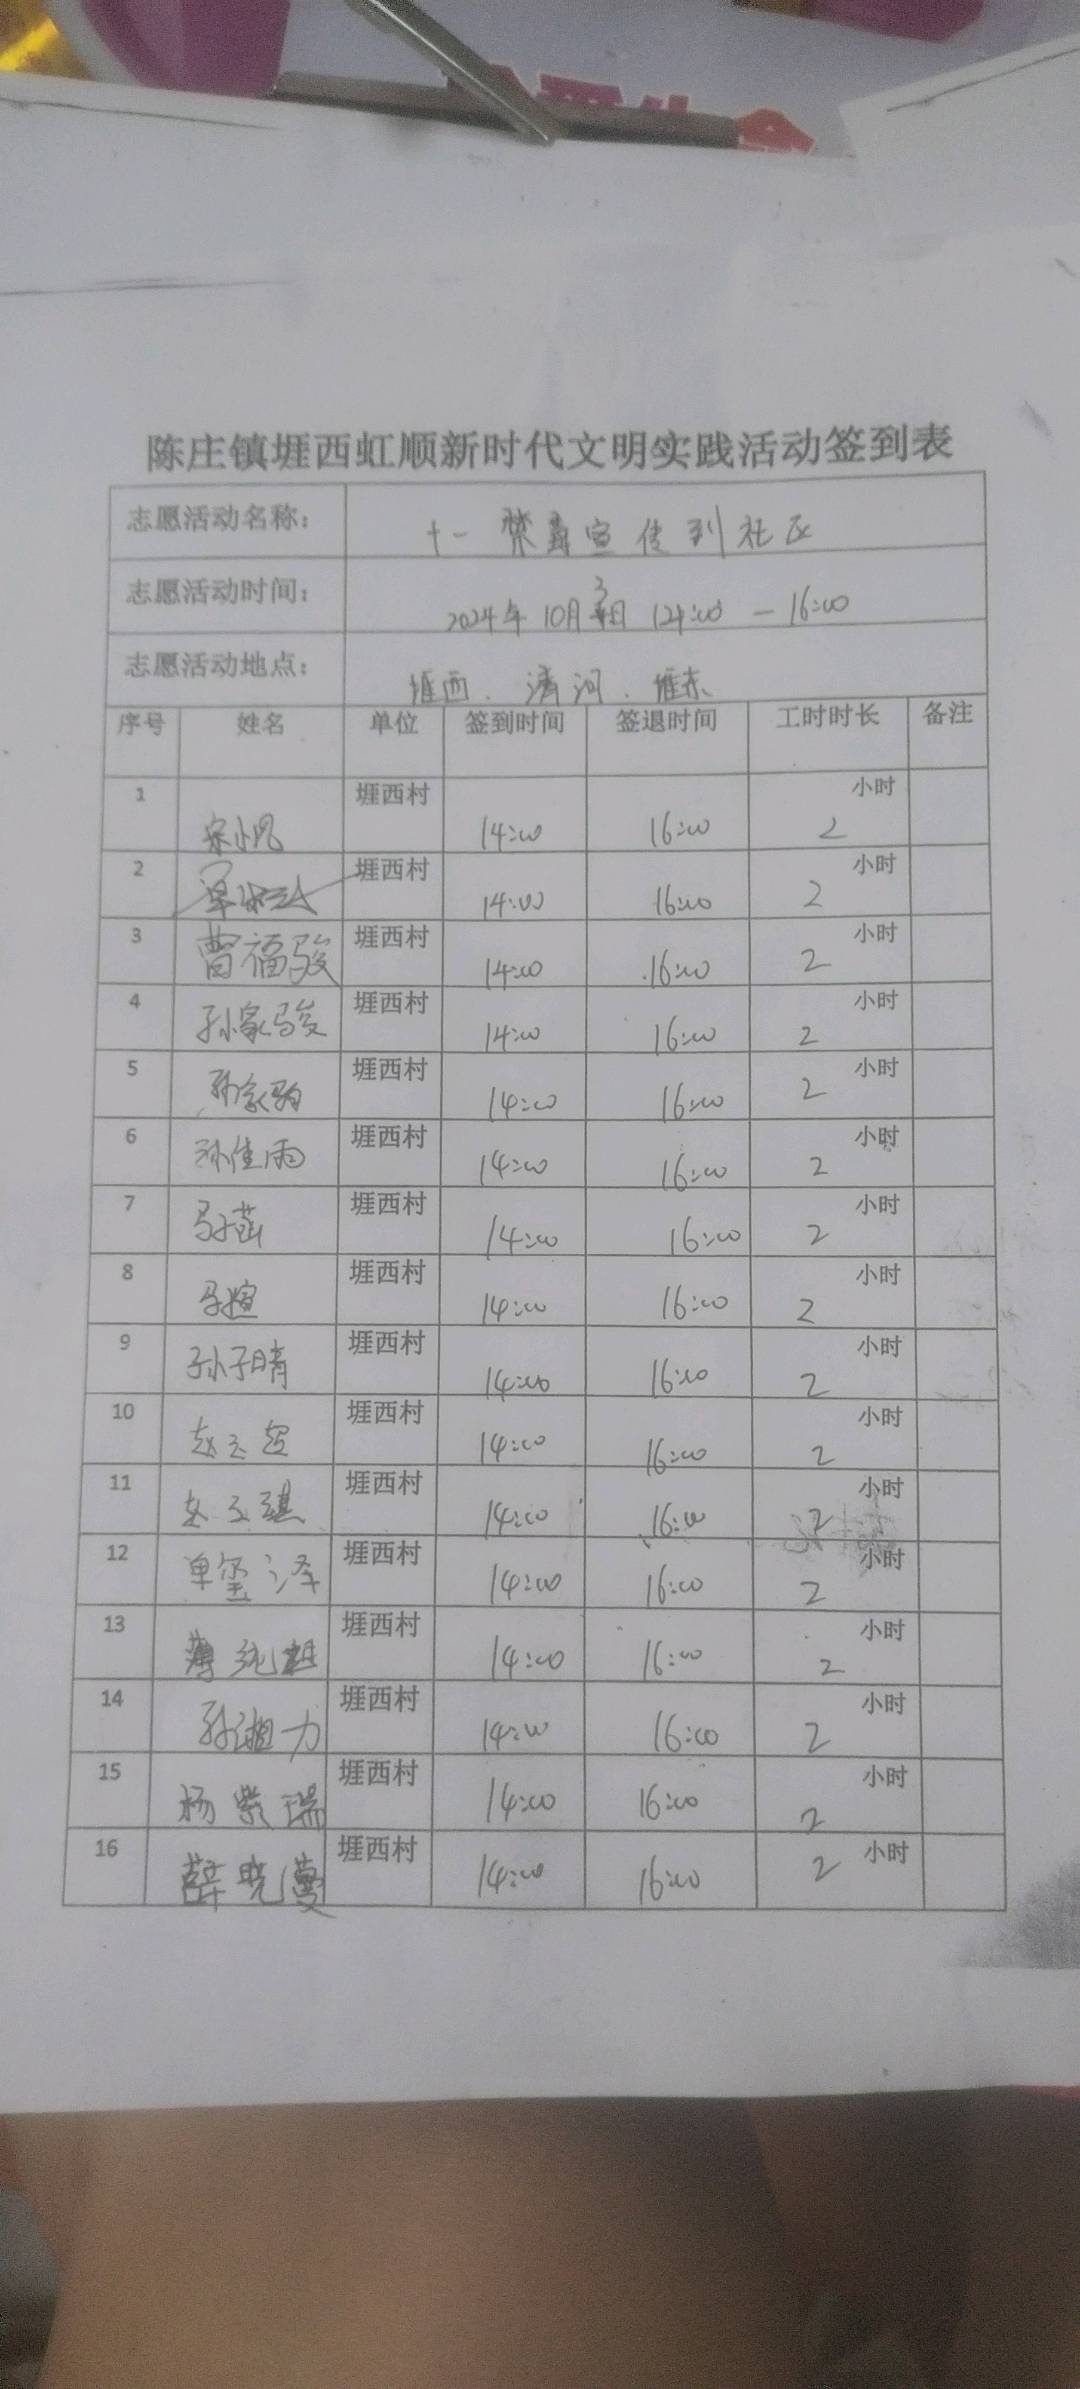 陈庄镇堐西虹顺新时代文明实践活动签到表
志愿活动名称： 十一禁毒宣传到社区
志愿活动时间： 2024年10月3日 14:00 — 16:00
志愿活动地点： 堐西、清河、堐东
序号 姓名 单位 签到时间 签退时间 工时时长 备注
1 堐西村 14:00 16:00 2 小时
2 堐西村 14:00 16:00 2 小时
3 曹福骏 堐西村 14:00 16:00 2 小时
4 孙家骏 堐西村 14:00 16:00 2 小时
5 孙家驹 堐西村 14:00 16:00 2 小时
6 孙佳雨 堐西村 14:00 16:00 2 小时
7 堐西村 14:00 16:00 2 小时
8 堐西村 14:00 16:00 2 小时
9 孙子晴 堐西村 14:00 16:00 2 小时
10 赵玉超 堐西村 14:00 16:00 2 小时
11 赵玉琪 堐西村 14:00 16:00 2 小时
12 单玺泽 堐西村 14:00 16:00 2 小时
13 堐西村 14:00 16:00 2 小时
14 堐西村 14:00 16:00 2 小时
15 杨紫瑞 堐西村 14:00 16:00 2 小时
16 薛晓蔓 堐西村 14:00 16:00 2 小时